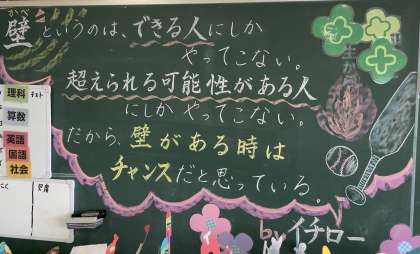 かべ
壁というのは、できる人にしか
やってこない。
超えられる可能性がある人
にしかやってこない。
だから、壁がある時は
チャンスだと思っている。
by イチロー
理科
テスト
算数
英語
国語
社会